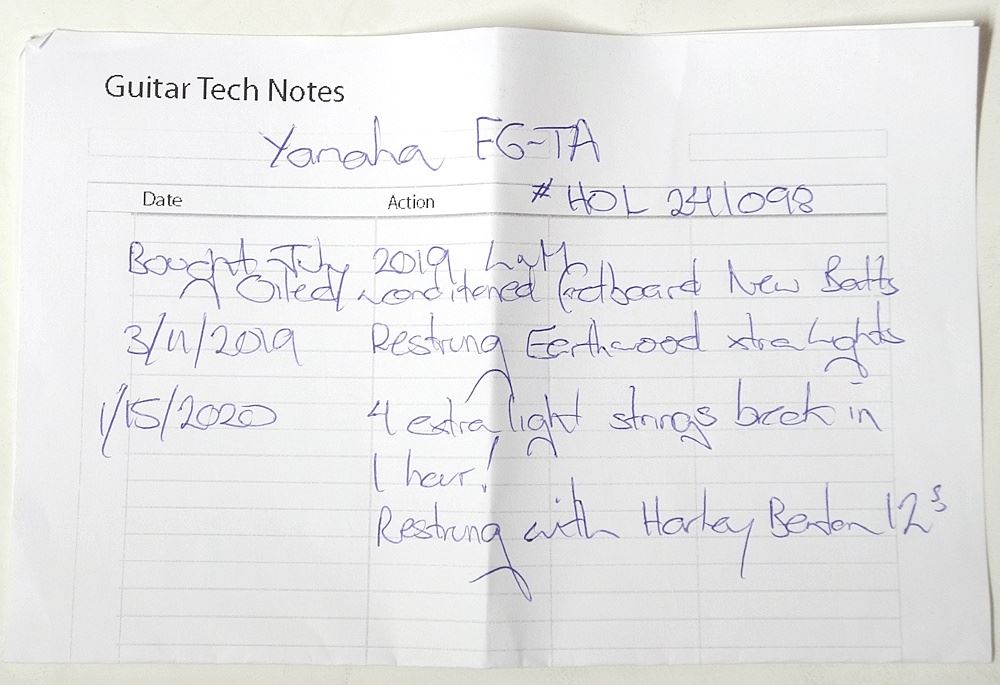 Guitar Tech Notes
Yamaha FG-TA
Date Action # HOL 241098
Bought July 2019
Oiled/conditioned fretboard New Batts
3/11/2019 Restrung Earthwood xtra Lights
1/15/2020 4 extra light strings break in
1 hour!
Restrung with Harley Benton 12s